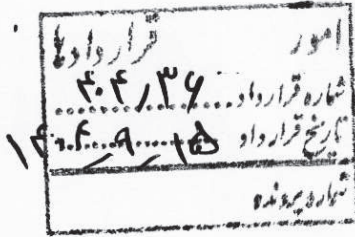 امور قراردادها
شماره قرارداد ۴۰۴/۳۶
تاریخ قرارداد ۱۴۰۴/۹/۱۵
شماره پرونده